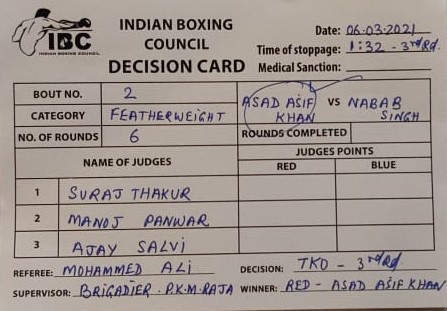 IBC
INDIAN BOXING COUNCIL
INDIAN BOXING
COUNCIL
DECISION CARD
Date: 06.03.2021
Time of stoppage: 1:32 - 3rd Rd.
Medical Sanction:
BOUT NO. 2
CATEGORY FEATHERWEIGHT
NO. OF ROUNDS 6
ASAD ASIF KHAN VS NABAB SINGH
ROUNDS COMPLETED
NAME OF JUDGES
JUDGES POINTS
RED BLUE
1 SURAJ THAKUR
2 MANOJ PANWAR
3 AJAY SALVI
REFEREE: MOHAMMED ALI DECISION: TKO - 3rd Rd
SUPERVISOR: BRIGADIER. P.K.M. RAJA WINNER: RED - ASAD ASIF KHAN